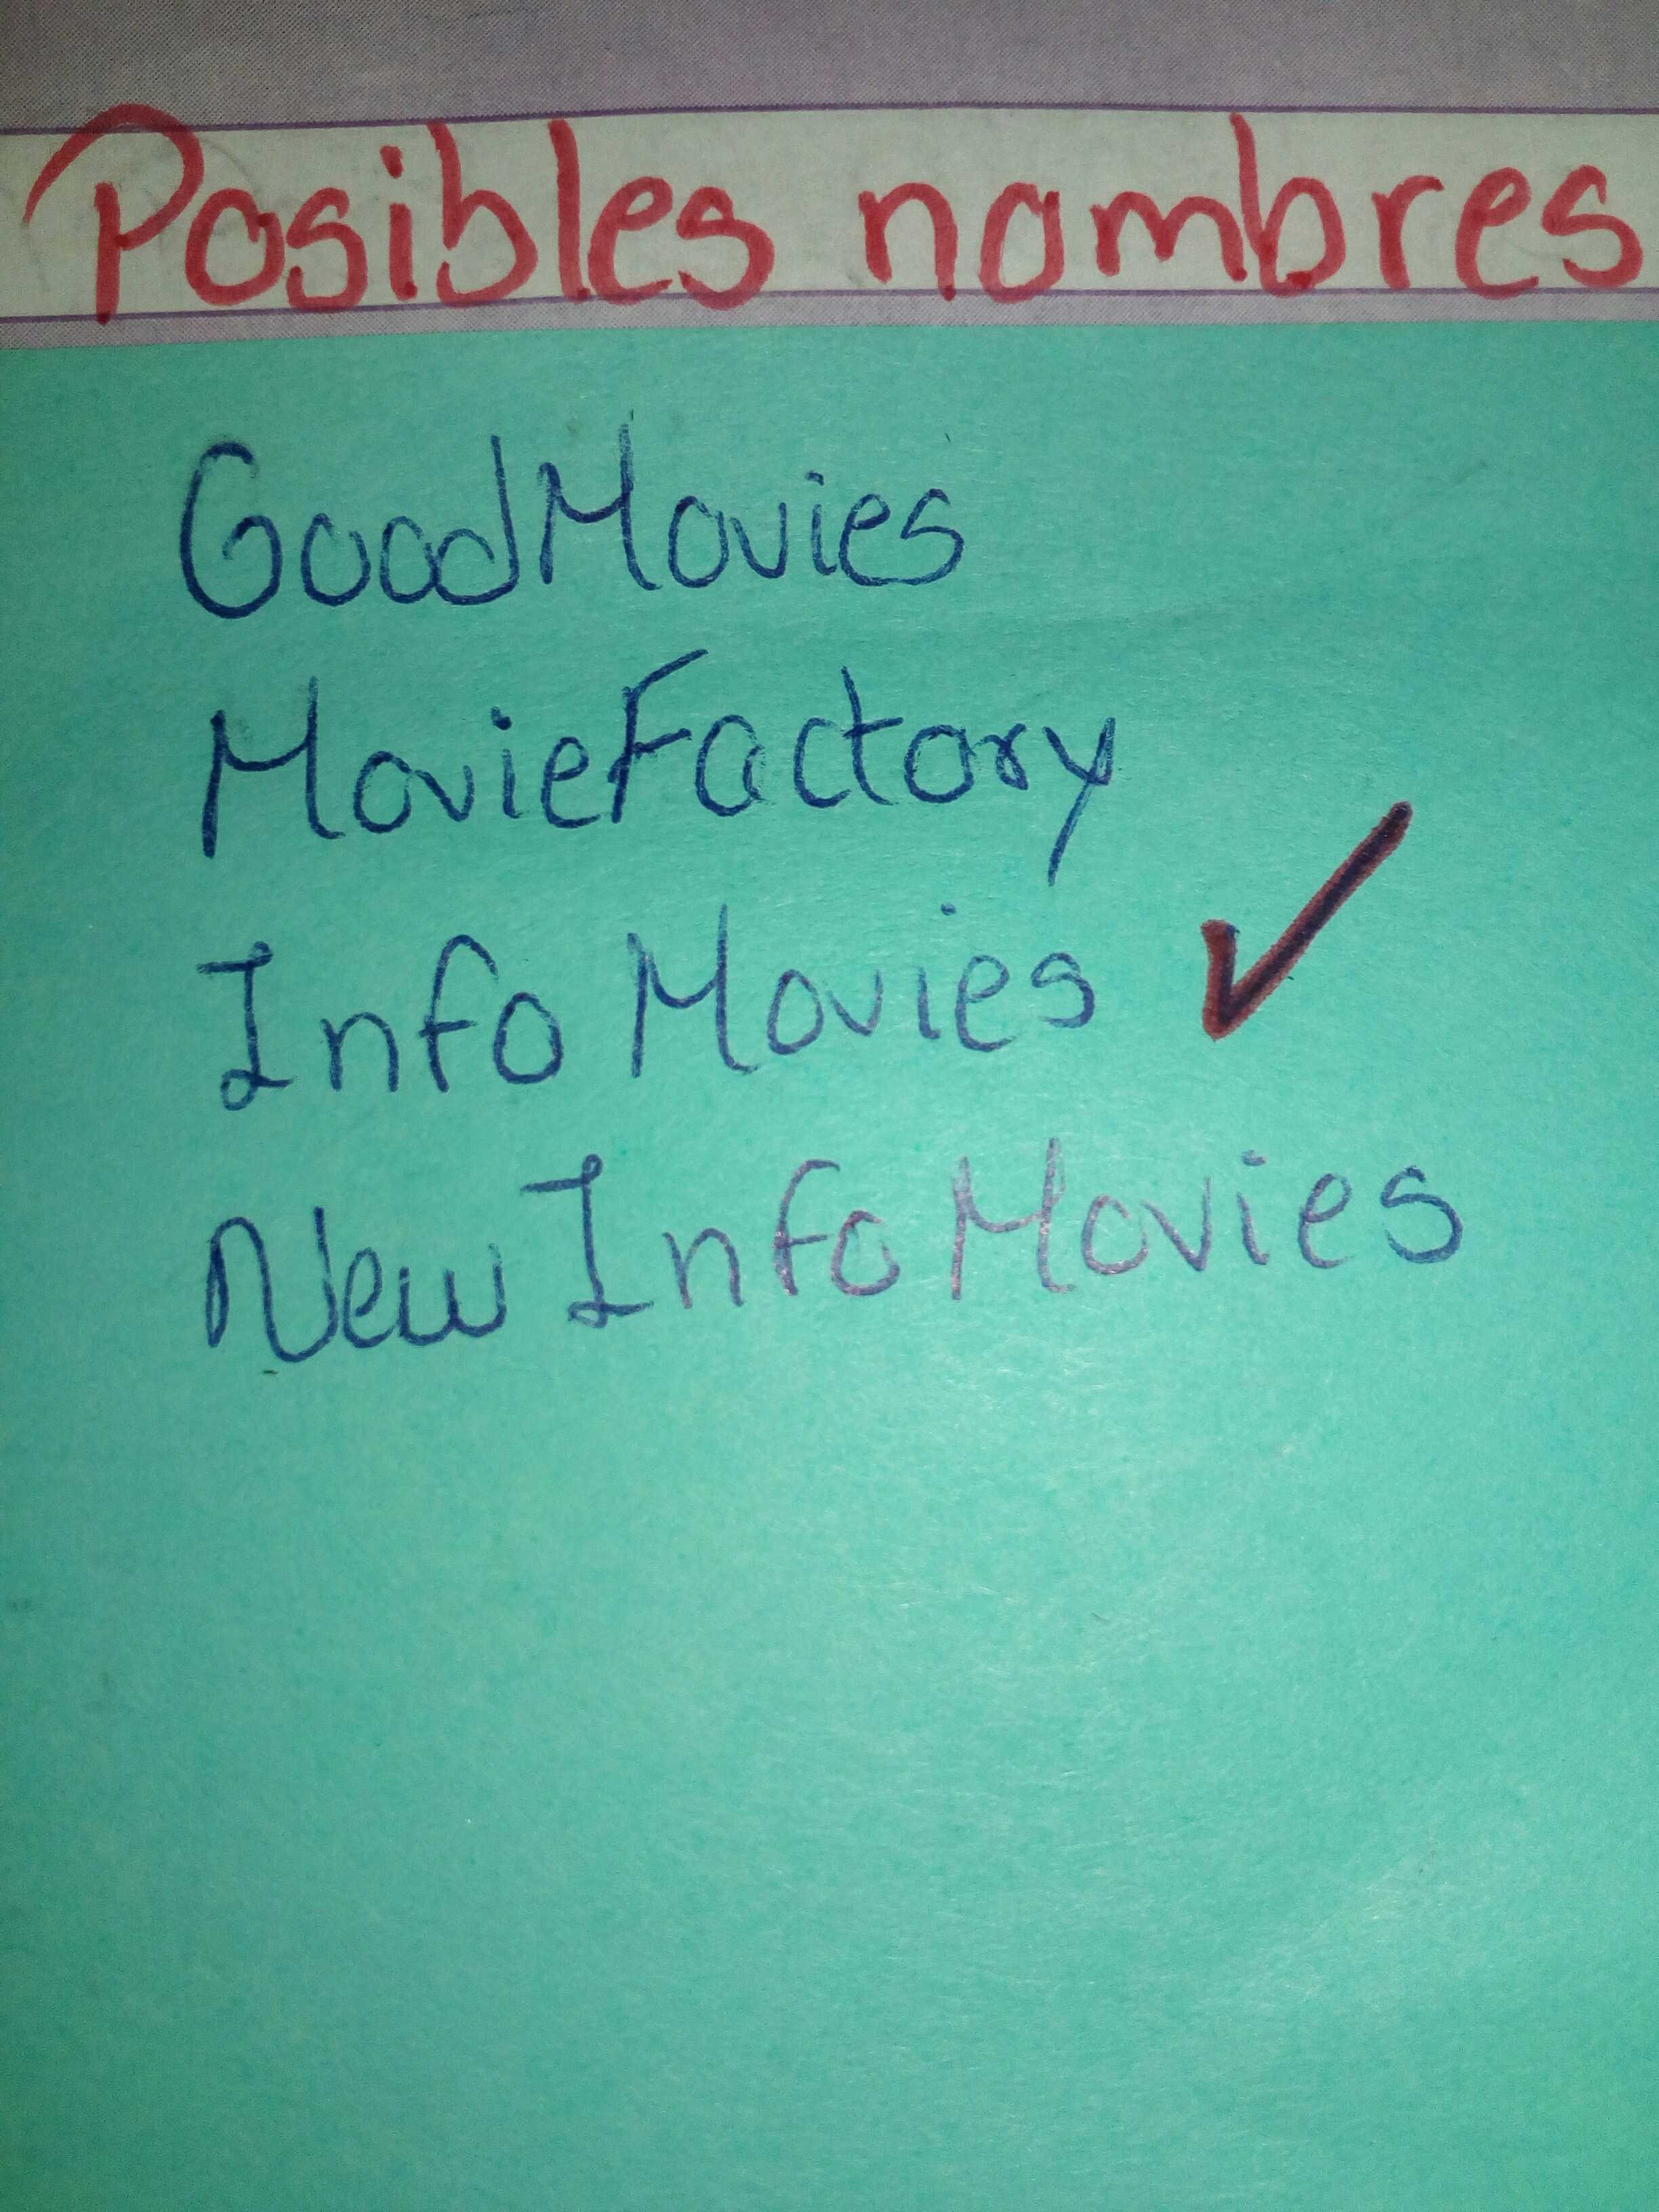 Posibles nombres
GoodMovies
MovieFactory
InfoMovies ✓
NewInfoMovies